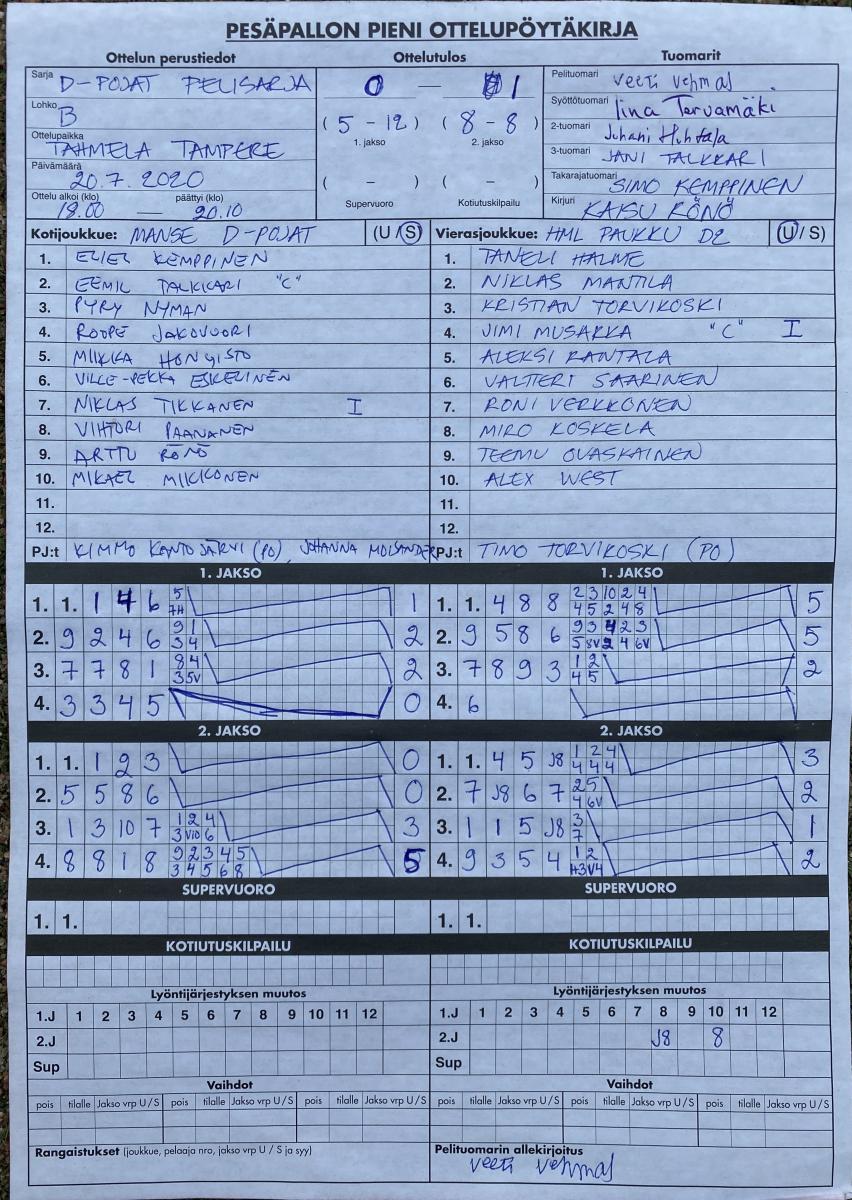 PESÄPALLON PIENI OTTELUPÖYTÄKIRJA
Ottelun perustiedot
Sarja D-POJAT PELISARJA
Lohko B
Ottelupaikka TAHMELA TAMPERE
Päivämäärä 20.7.2020
Ottelu alkoi (klo) päättyi (klo)
18.00 — 20.10
Ottelutulos
0 — 1
(5 - 12) (8 - 8)
1. jakso 2. jakso
( - ) ( - )
Supervuoro Kotiutuskilpailu
Tuomarit
Pelituomari Veeti Vehmas
Syöttötuomari Iina Tervamäki
2-tuomari Juhani Huhtala
3-tuomari JANI TALKKARI
Takarajatuomari SIMO KEMPPINEN
Kirjuri KAISU RÖNÖ
Kotijoukkue: MANSE D-POJAT (U/S)
1. ELIEL KEMPPINEN
2. EEMIL TALKKARI "C"
3. PYRY NYMAN
4. ROOPE JAKOVUORI
5. MIIKKA HONGISTO
6. VILLE-PEKKA ESKELINEN
7. NIKLAS TIKKANEN I
8. VIHTORI PAANANEN
9. ARTTU RÖNÖ
10. MIKAEL MIKKONEN
11.
12.
PJ:t KIMMO KONTOJÄRVI (PO), JOHANNA MOLSANDER
Vierasjoukkue: HML PAUKKU D2 (U/S)
1. TANELI HALME
2. NIKLAS MANTILA
3. KRISTIAN TORVIKOSKI
4. JIMI MUSAKKA "C" I
5. ALEKSI RANTALA
6. VALTTERI SAARINEN
7. RONI VERKKONEN
8. MIRO KOSKELA
9. TEEMU OVASKAINEN
10. ALEX WEST
11.
12.
PJ:t TIMO TORVIKOSKI (PO)
1. JAKSO
1. 1. 1 4 6 5 7H 1
2. 9 2 4 6 9 1 3 4 2
3. 7 7 8 1 8 4 3 5V 2
4. 3 3 4 5 0
1. JAKSO
1. 1. 4 8 8 2 3 10 2 4 4 5 2 4 8 5
2. 9 5 8 6 9 3 4 2 3 5 8V 2 4 6V 5
3. 7 8 9 3 1 2 4 5 2
4. 6
2. JAKSO
1. 1. 1 2 3 0
2. 5 5 8 6 0
3. 1 3 10 7 1 2 4 3 V10 6 3
4. 8 8 1 8 9 2 3 4 5 3 4 5 6 8 5
2. JAKSO
1. 1. 4 5 J8 1 2 4 4 4 4 3
2. 7 J8 6 7 2 5 4 6V 2
3. 1 1 5 J8 3 7 1
4. 9 3 5 4 1 2 H3 V4 2
SUPERVUORO
1. 1.
SUPERVUORO
1. 1.
KOTIUTUSKILPAILU
KOTIUTUSKILPAILU
Lyöntijärjestyksen muutos
1.J 1 2 3 4 5 6 7 8 9 10 11 12
2.J
Sup
Lyöntijärjestyksen muutos
1.J 1 2 3 4 5 6 7 8 9 10 11 12
2.J J8 8
Sup
Vaihdot
pois tilalle Jakso vrp U/S pois tilalle Jakso vrp U/S pois tilalle Jakso vrp U/S
Vaihdot
pois tilalle Jakso vrp U/S pois tilalle Jakso vrp U/S pois tilalle Jakso vrp U/S
Rangaistukset (joukkue, pelaaja nro, jakso vrp U / S ja syy)
Pelituomarin allekirjoitus
Veeti Vehmas